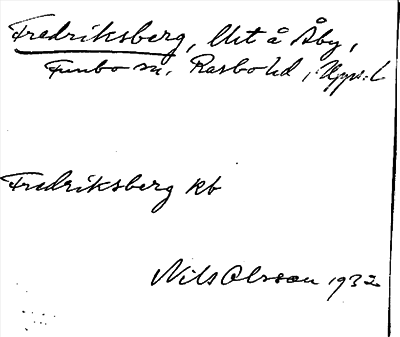 Fredriksberg, Utt å Åby,
Funbo sn, Rasbo hd, Upps. L
Fredriksberg kb
Nils Olsson 1932